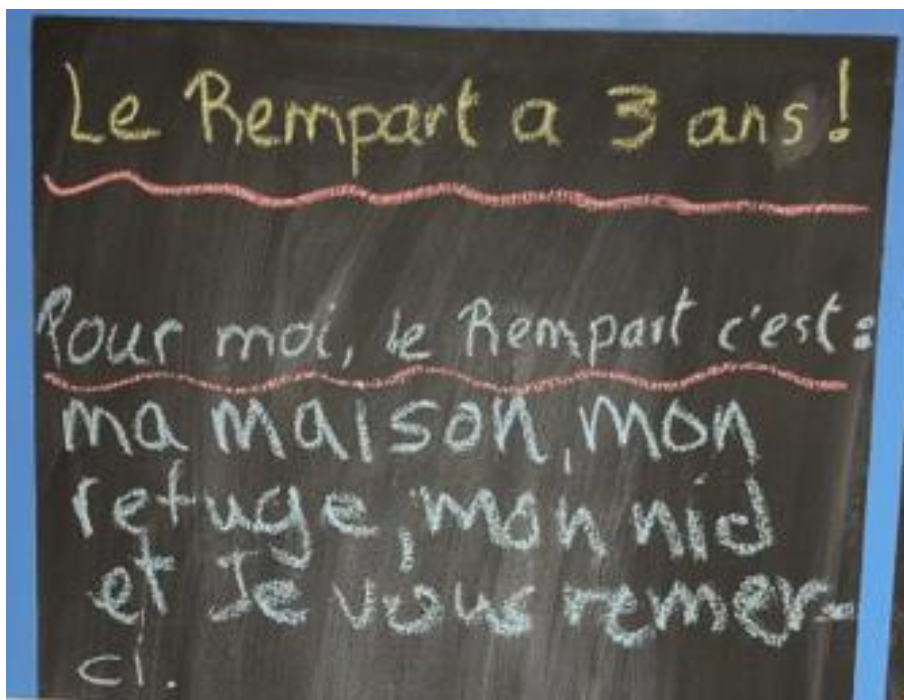 Le Rempart a 3 ans !
Pour moi, le Rempart c'est :
ma maison, mon
refuge, mon nid
et Je vous remer-
ci.